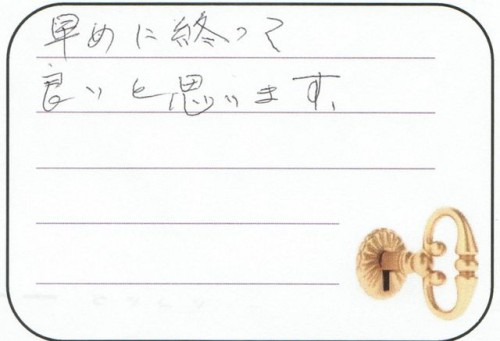 早めに終って
良いと思います。